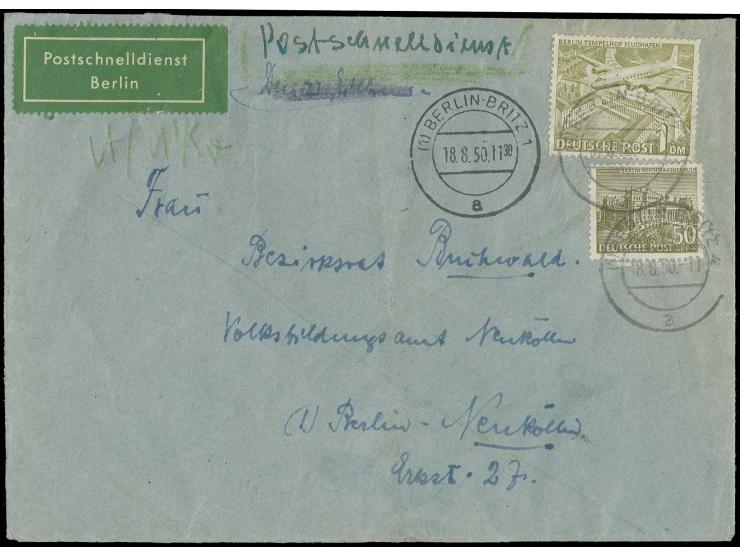 Postschnelldienst
Berlin
Postschnelldienst
BERLIN-TEMPELHOF FLUGHAFEN
1 DM
DEUTSCHE POST
(1) BERLIN-BRITZ 1
18.8.50.11 30
a
BERLIN-REICHSTAGSGEBÄUDE
50
DEUTSCHE POST
18.8.50.-11
a
Frau
Bezirksrat Buchwald.
Volksbildungsamt Neukölln
1) Berlin-Neukölln
Erkstr. 27.